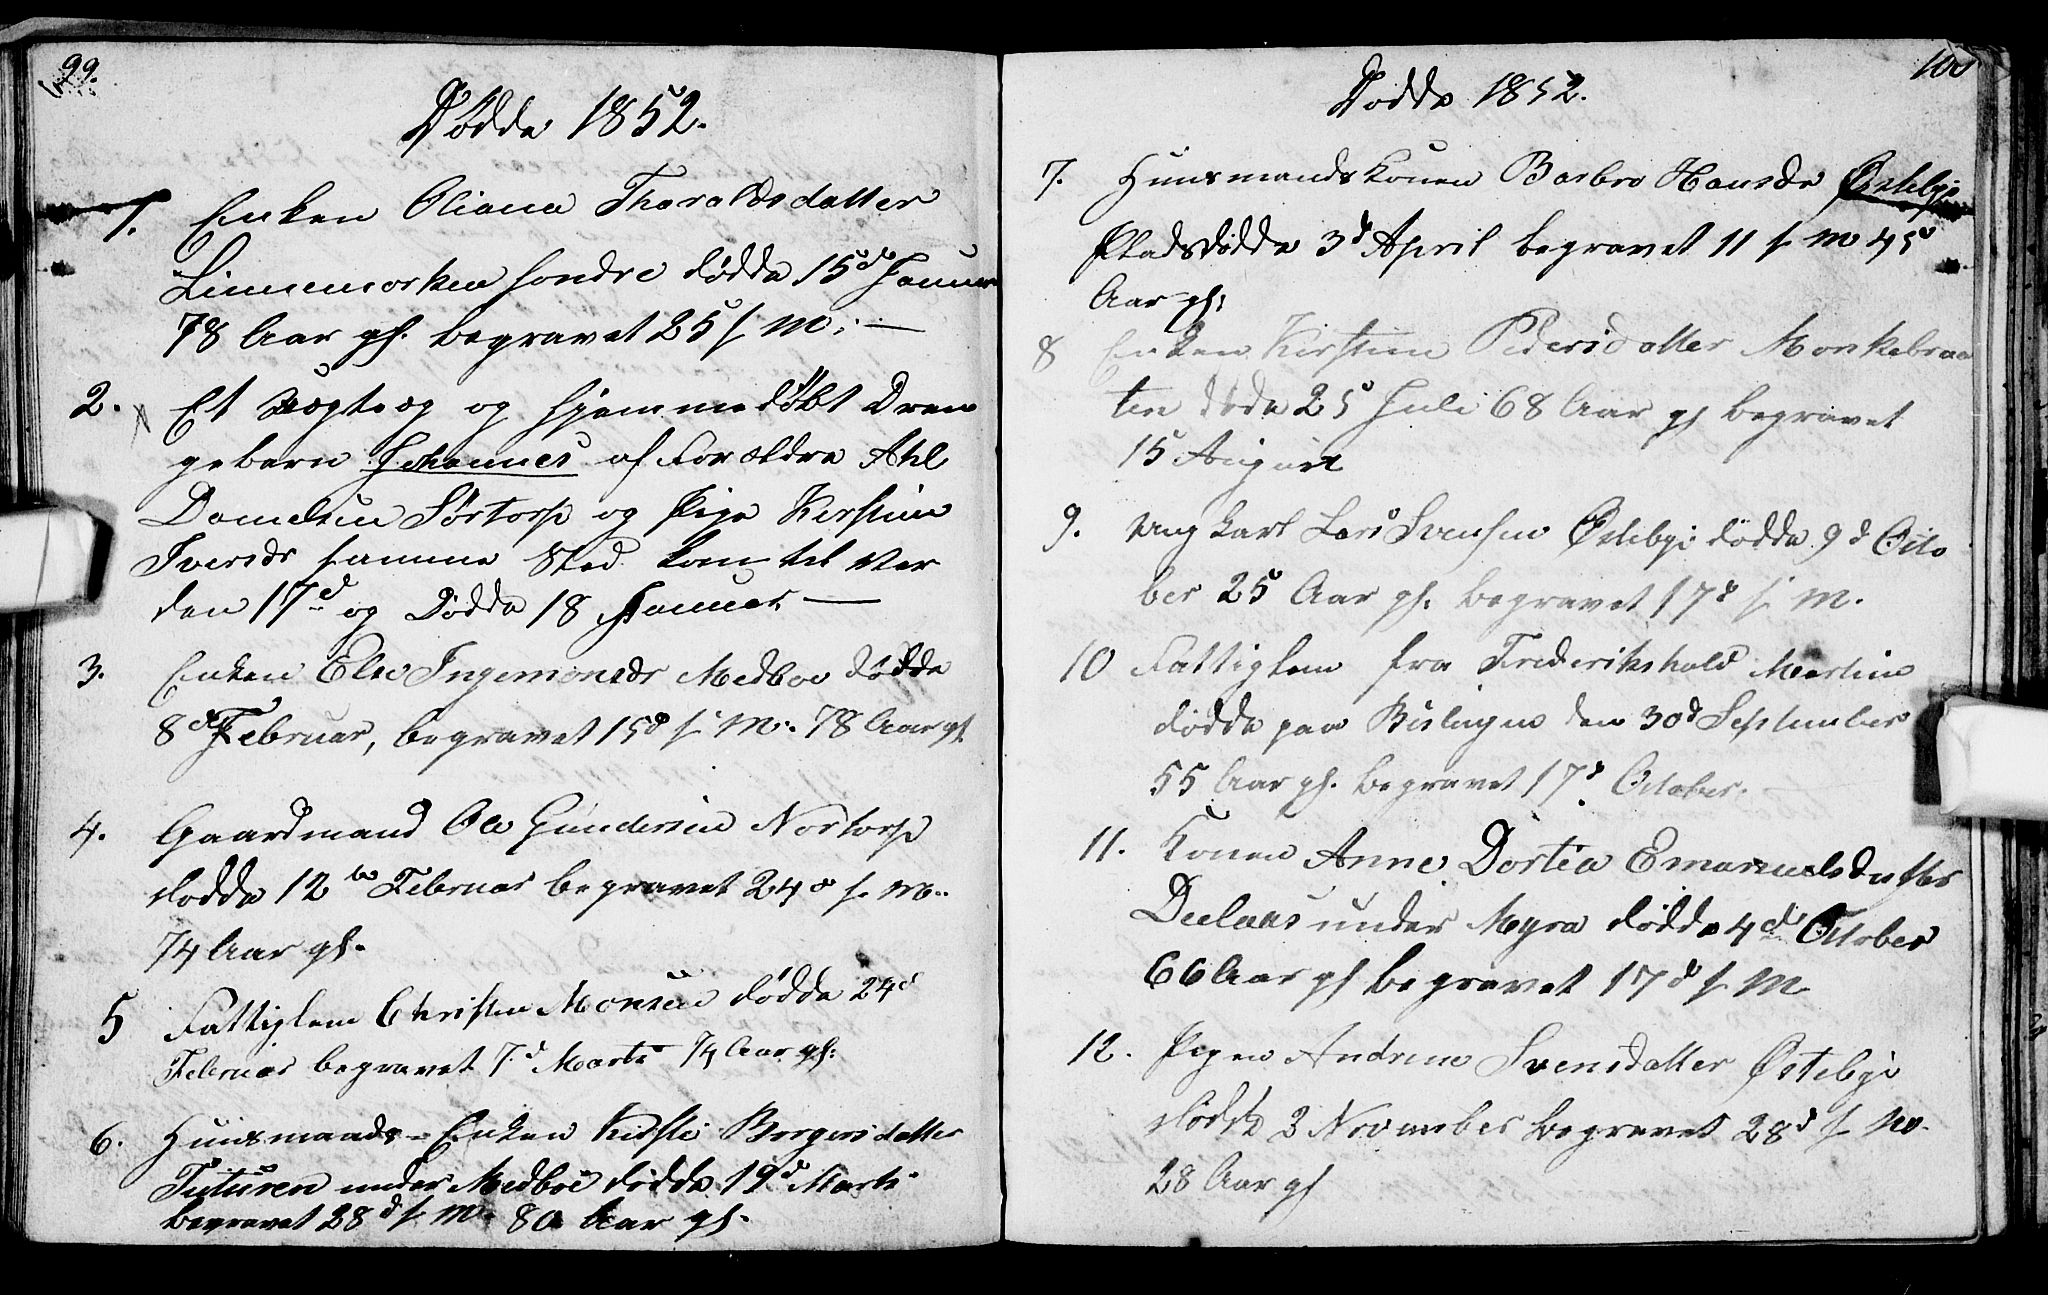 99.
Dødde 1852.
1. Enken Oliana Tharaldsdatter
Linnemorken søndre dødde 15d Januar
78 Aar gl. begravet 25 s. M. —
2. Et Uægte og hjemmedøbt Dren
gebarn Johannes af Forældre Ahl
Danielsen Sørtorp og Pige Kerstine
Iversdr samme Sted kom til Ver
den 17d og Dødde 18 Januar. —
3. Enken Else Ingemonsdr Medboe dødde
8d Februar, begravet 15d s. M. 78 Aar gl.
4. Gaardmand Ole Gundersen Nortorp
dødde 12te Februar begravet 24d s. M.
74 Aar gl.
5 Fattiglem Christen Monsen dødde 24d
Februar begravet 7.d Marts 74 Aar gl:
6. Huusmands-Enken Kirsti Borgersdatter
Tuturen under Medboe dødde 19d Marts
begravet 28d s. M. 80 Aar gl.
100
Dødde 1852.
7. Huusmandskonen Barbro Hansdr Østebye
Pladsdødde 3d April begravet 11 s. M 45
Aar gl:
8 Enken Kirstine Pedersdatter Monkebraa
ten døde 25 Juli 68 Aar gl begravet
15 August
9. Ung Karl Lars Svensen Østebye dødde 9d Octo
ber 25 Aar gl. begravet 17d s. M.
10 Fattiglem fra Frederikshald Martin
dødde paa Bislingen den 30d September
55 Aar gl. begravet 17d October.
11. Konen Anne Dortea Emanuelsdatter
Deelaas under Myra dødde 4d October
66 Aar gl begravet 17d s. M.
12. Pigen Andrine Svensdatter Østebye
dødde 3 November begravet 28d s. M.
28 Aar gl